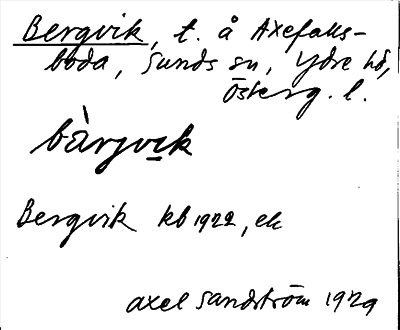 Bergvik, t. å Axefalls-
boda, Sunds sn, Ydre hd,
Österg. l.
bàrgvik
Bergvik kb 1922, ek
Axel Sandström 1929